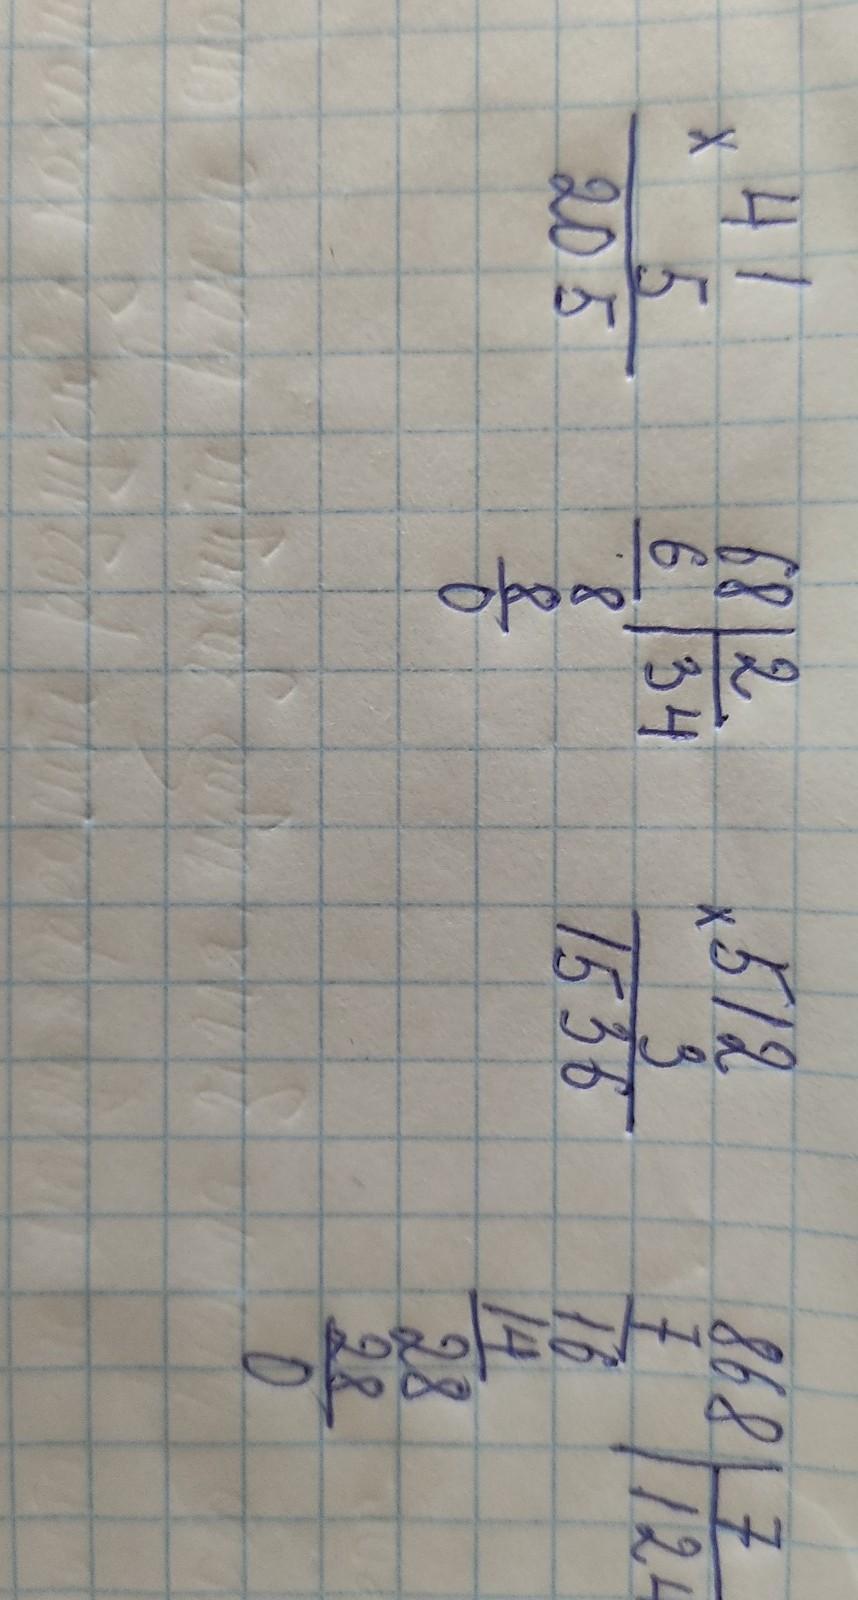 × 41
5
205
68 | 2
6 | 34
8
8
0
× 512
3
1536
868 | 7
7 | 124
16
14
28
28
0